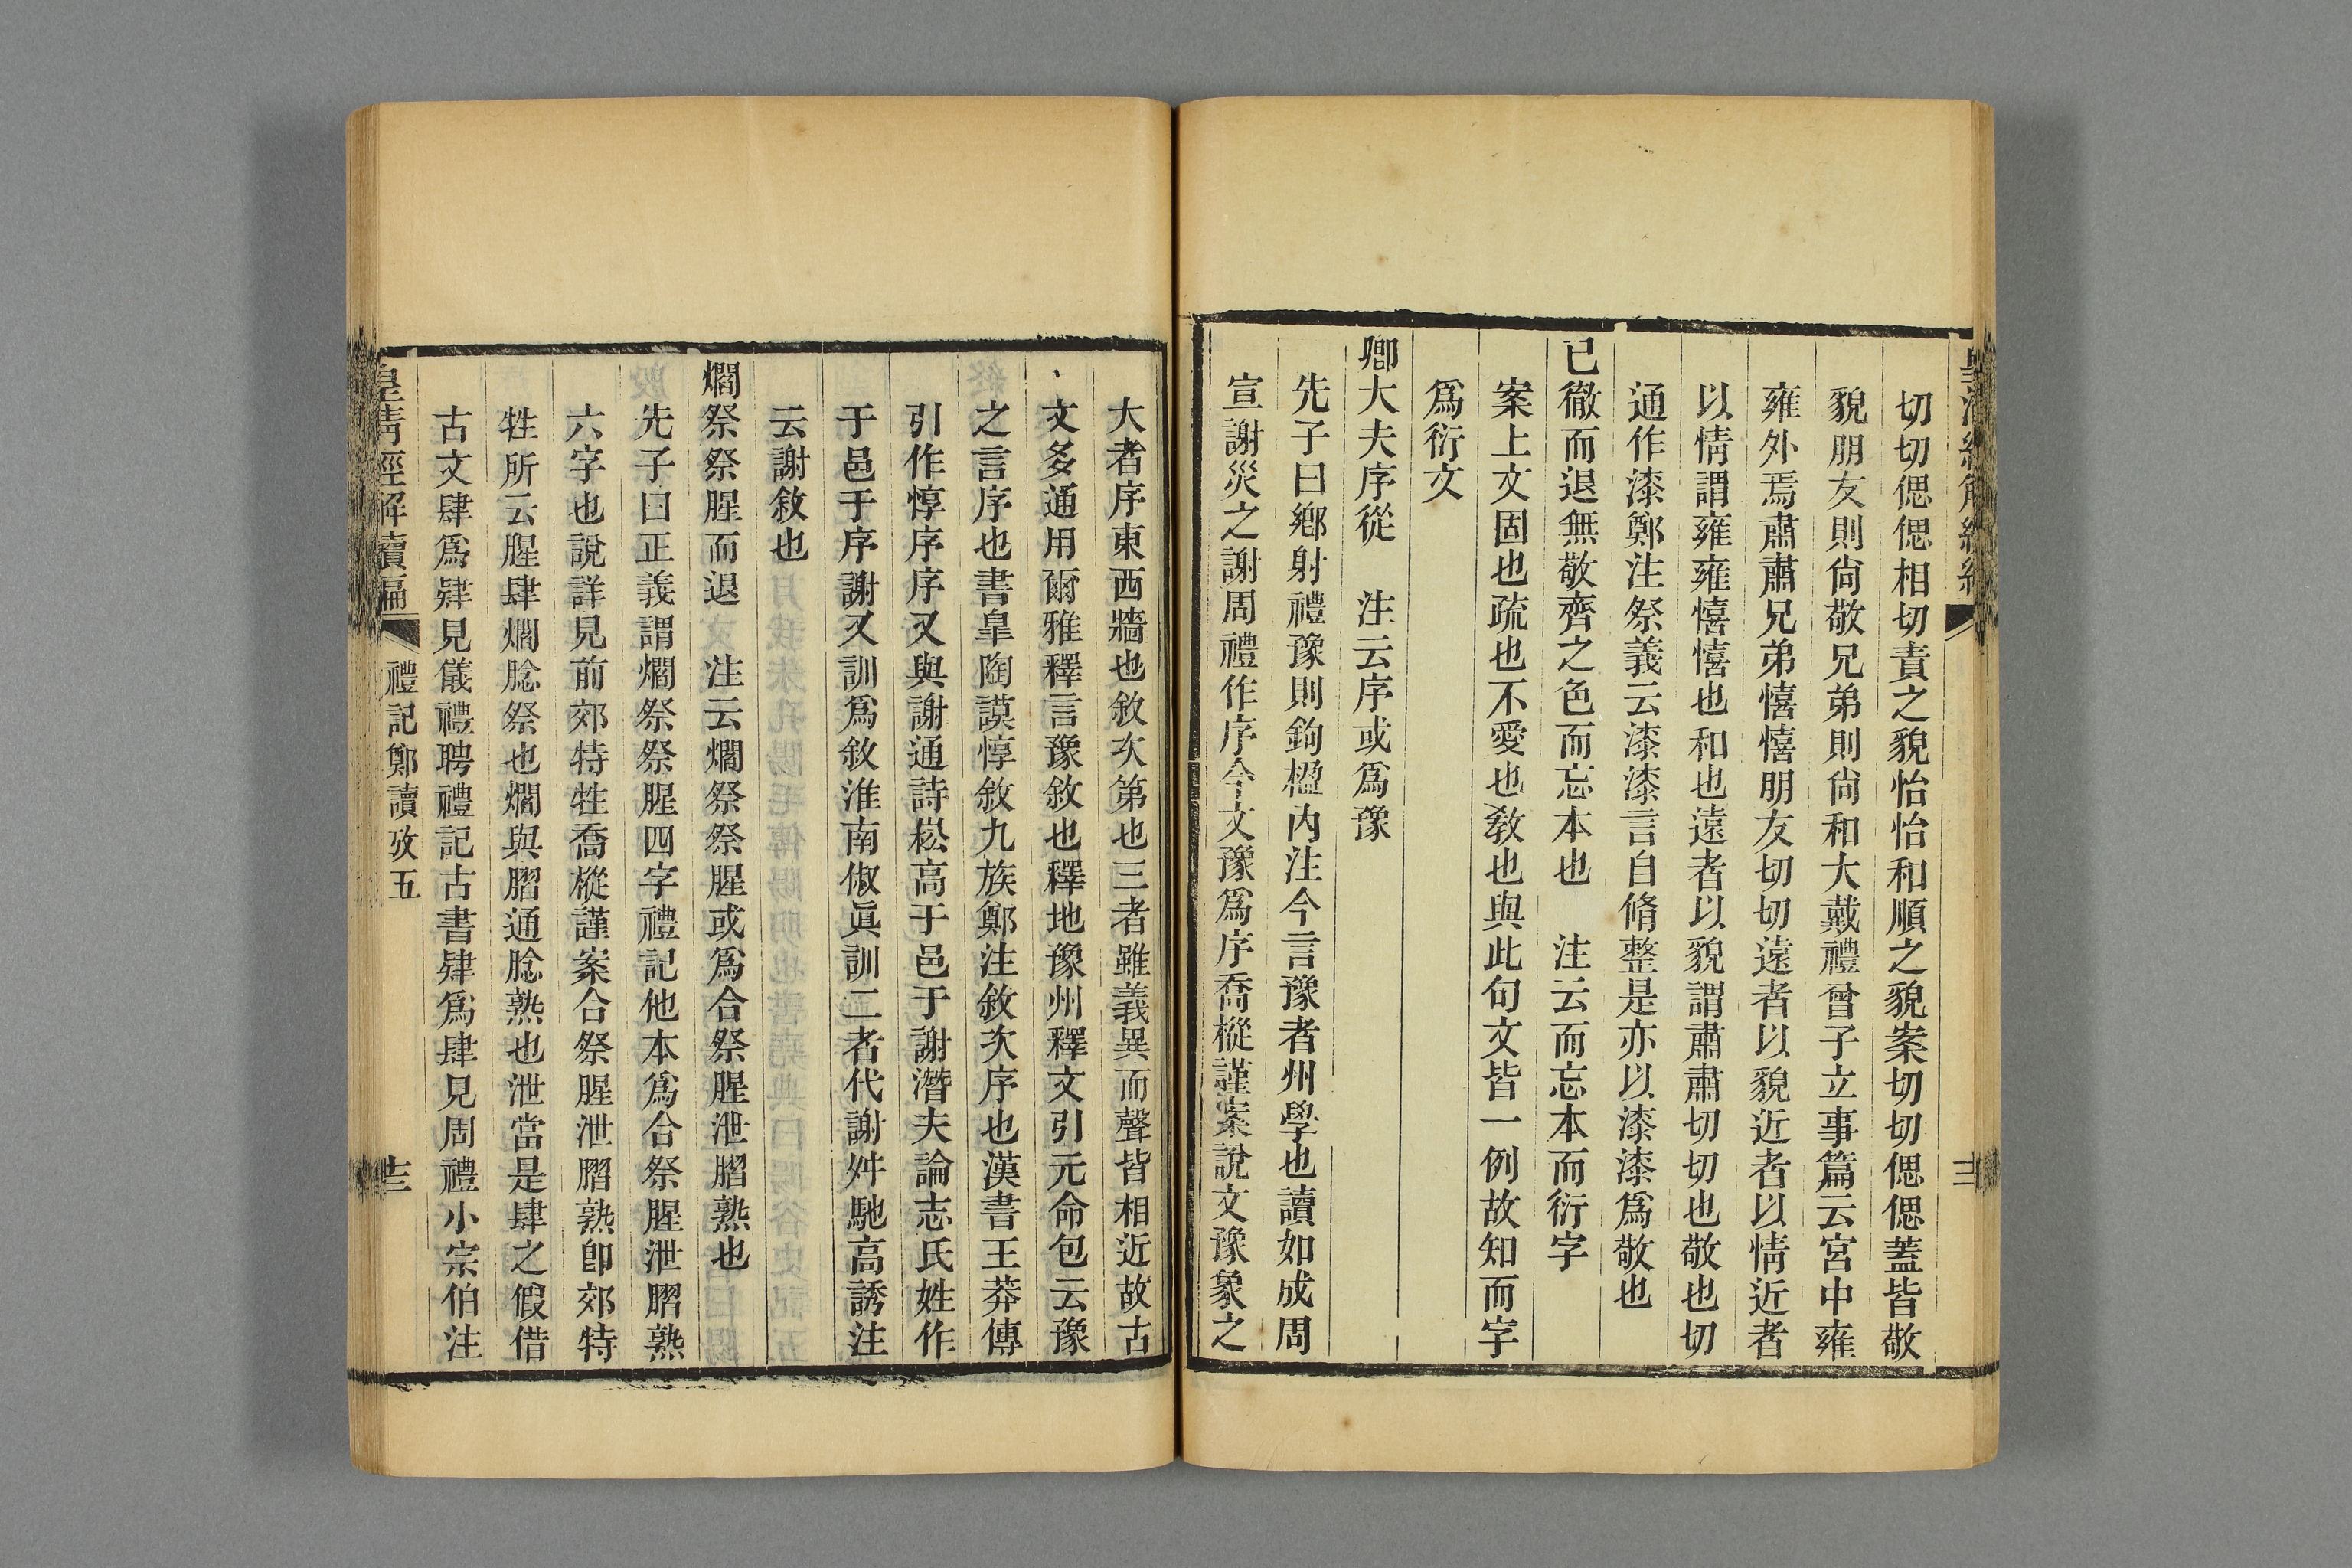 切切偲偲相切責之貌怡怡和順之貌案切切偲偲蓋皆敬
貌朋友則尙敬兄弟則尙和大戴禮曾子立事篇云宮中雍
雍外焉肅肅兄弟憘憘朋友切切遠者以貌近者以情近者
以情謂雍雍憘憘也和也遠者以貌謂肅肅切切也敬也切
通作漆鄭注祭義云漆漆言自脩整是亦以漆漆爲敬也
已徹而退無敬齊之色而忘本也　注云而忘本而衍字
案上文固也疏也不愛也敎也與此句文皆一例故知而字
爲衍文
卿大夫序從　注云序或爲豫
先子曰鄕射禮豫則鉤楹內注今言豫者州學也讀如成周
宣謝災之謝周禮作序今文豫爲序喬樅謹案說文豫象之
大者序東西牆也敘次第也三者雖義異而聲皆相近故古
文多通用爾雅釋言豫敘也釋地豫州釋文引元命包云豫
之言序也書臯陶謨惇敘九族鄭注敘次序也漢書王莽傳
引作惇序序又與謝通詩崧高于邑于謝潛夫論志氏姓作
于邑于序謝又訓爲敘淮南俶眞訓二者代謝舛馳高誘注
云謝敘也
爓祭祭腥而退　注云爓祭祭腥或爲合祭腥泄膶熟也
先子曰正義謂爓祭祭腥四字禮記他本爲合祭腥泄膶熟
六字也說詳見前郊特牲喬樅謹案合祭腥泄膶熟卽郊特
牲所云腥肆爓腍祭也爓與膶通腍熟也泄當是肆之假借
古文肆爲肄見儀禮聘禮記古書肄爲肆見周禮小宗伯注
皇清經解續編
禮記鄭讀攷五